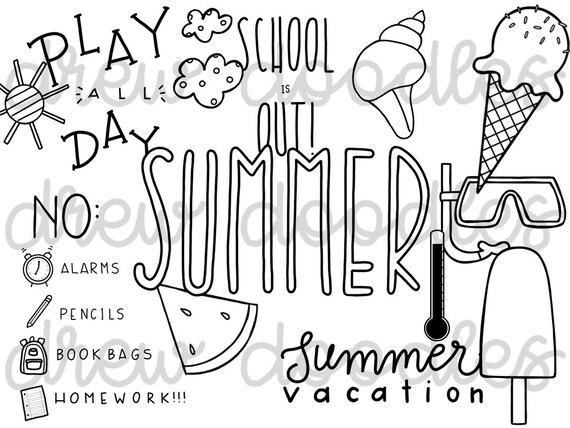 PLAY
ALL
DAY
SCHOOL
IS
OUT!
SUMMER
NO:
ALARMS
PENCILS
BOOKBAGS
HOMEWORK!!!
Summer
vacation
drew doodles
drew doodles
drew doodles
drew doodles